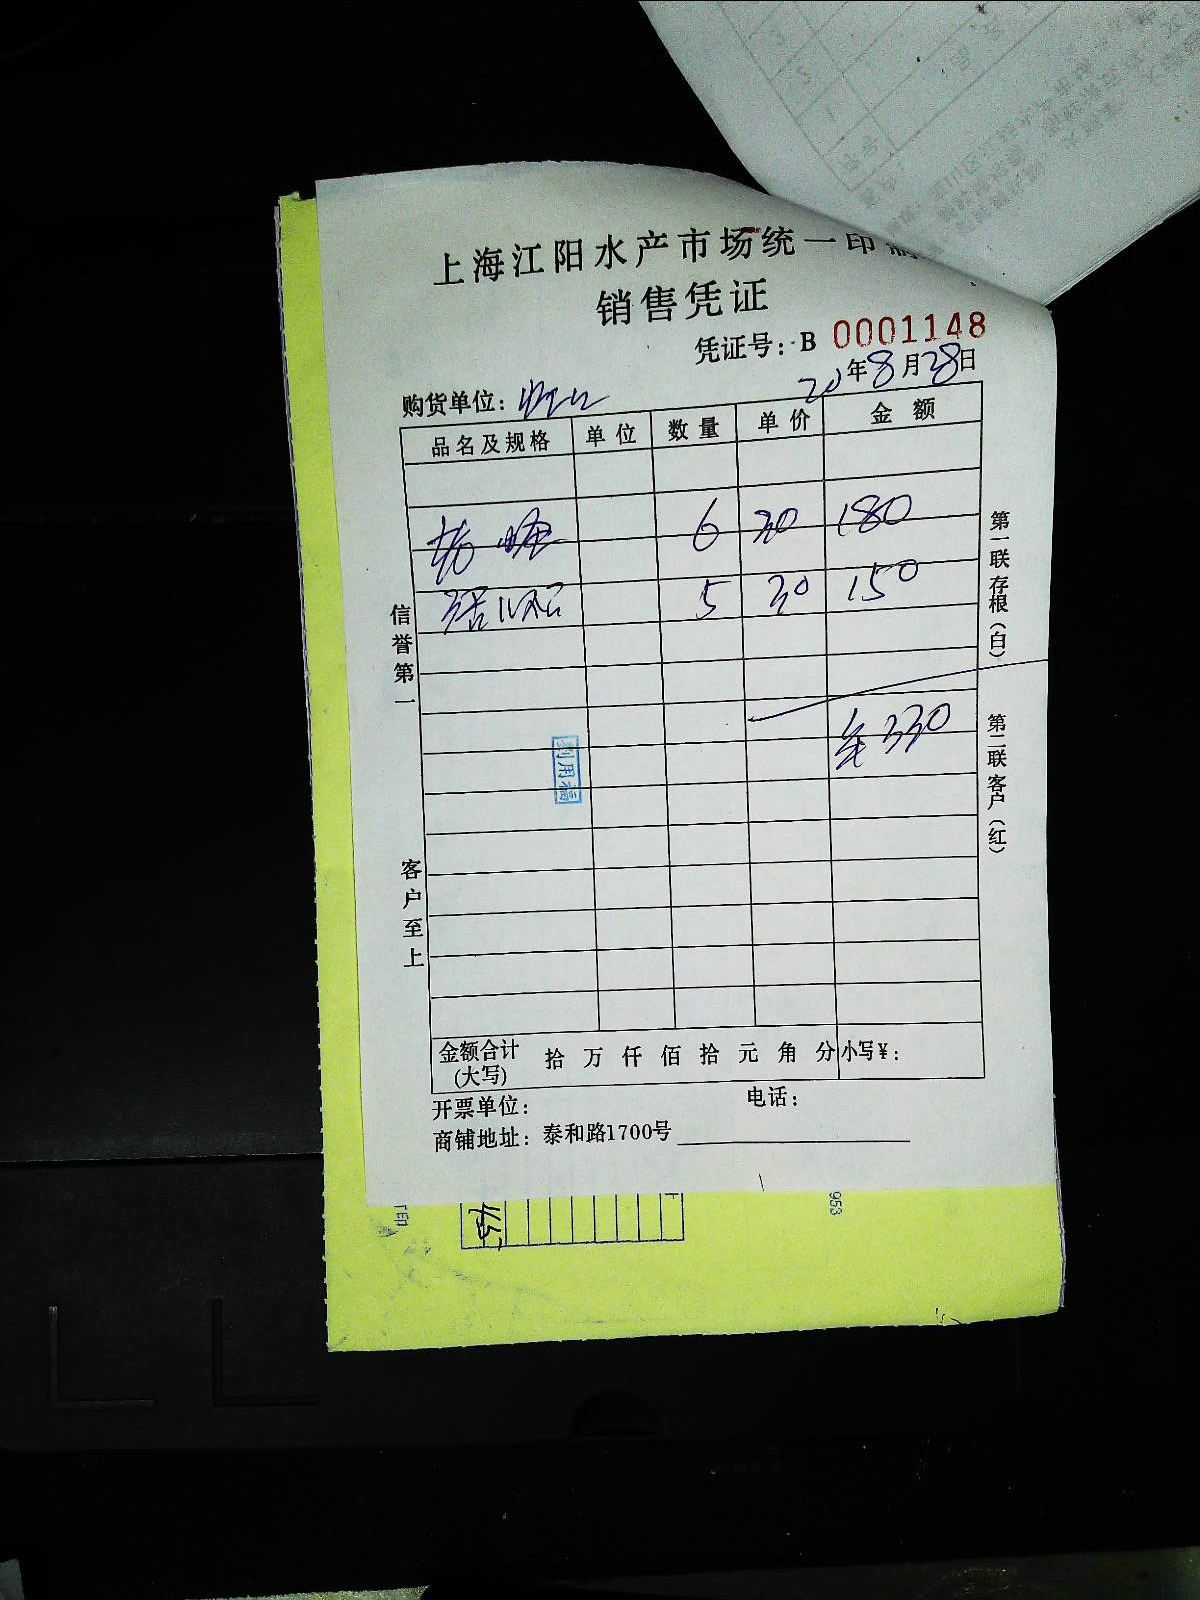 上海江阳水产市场统一印制
销售凭证
凭证号: B 0001148
20年8月28日
购货单位:
品名及规格 单位 数量 单价 金额
6 30 180
5 30 150
330
信誉第一
客户至上
第一联存根(白)
第二联客户(红)
金额合计(大写) 拾 万 仟 佰 拾 元 角 分 小写¥:
开票单位: 电话:
商铺地址: 泰和路1700号
953